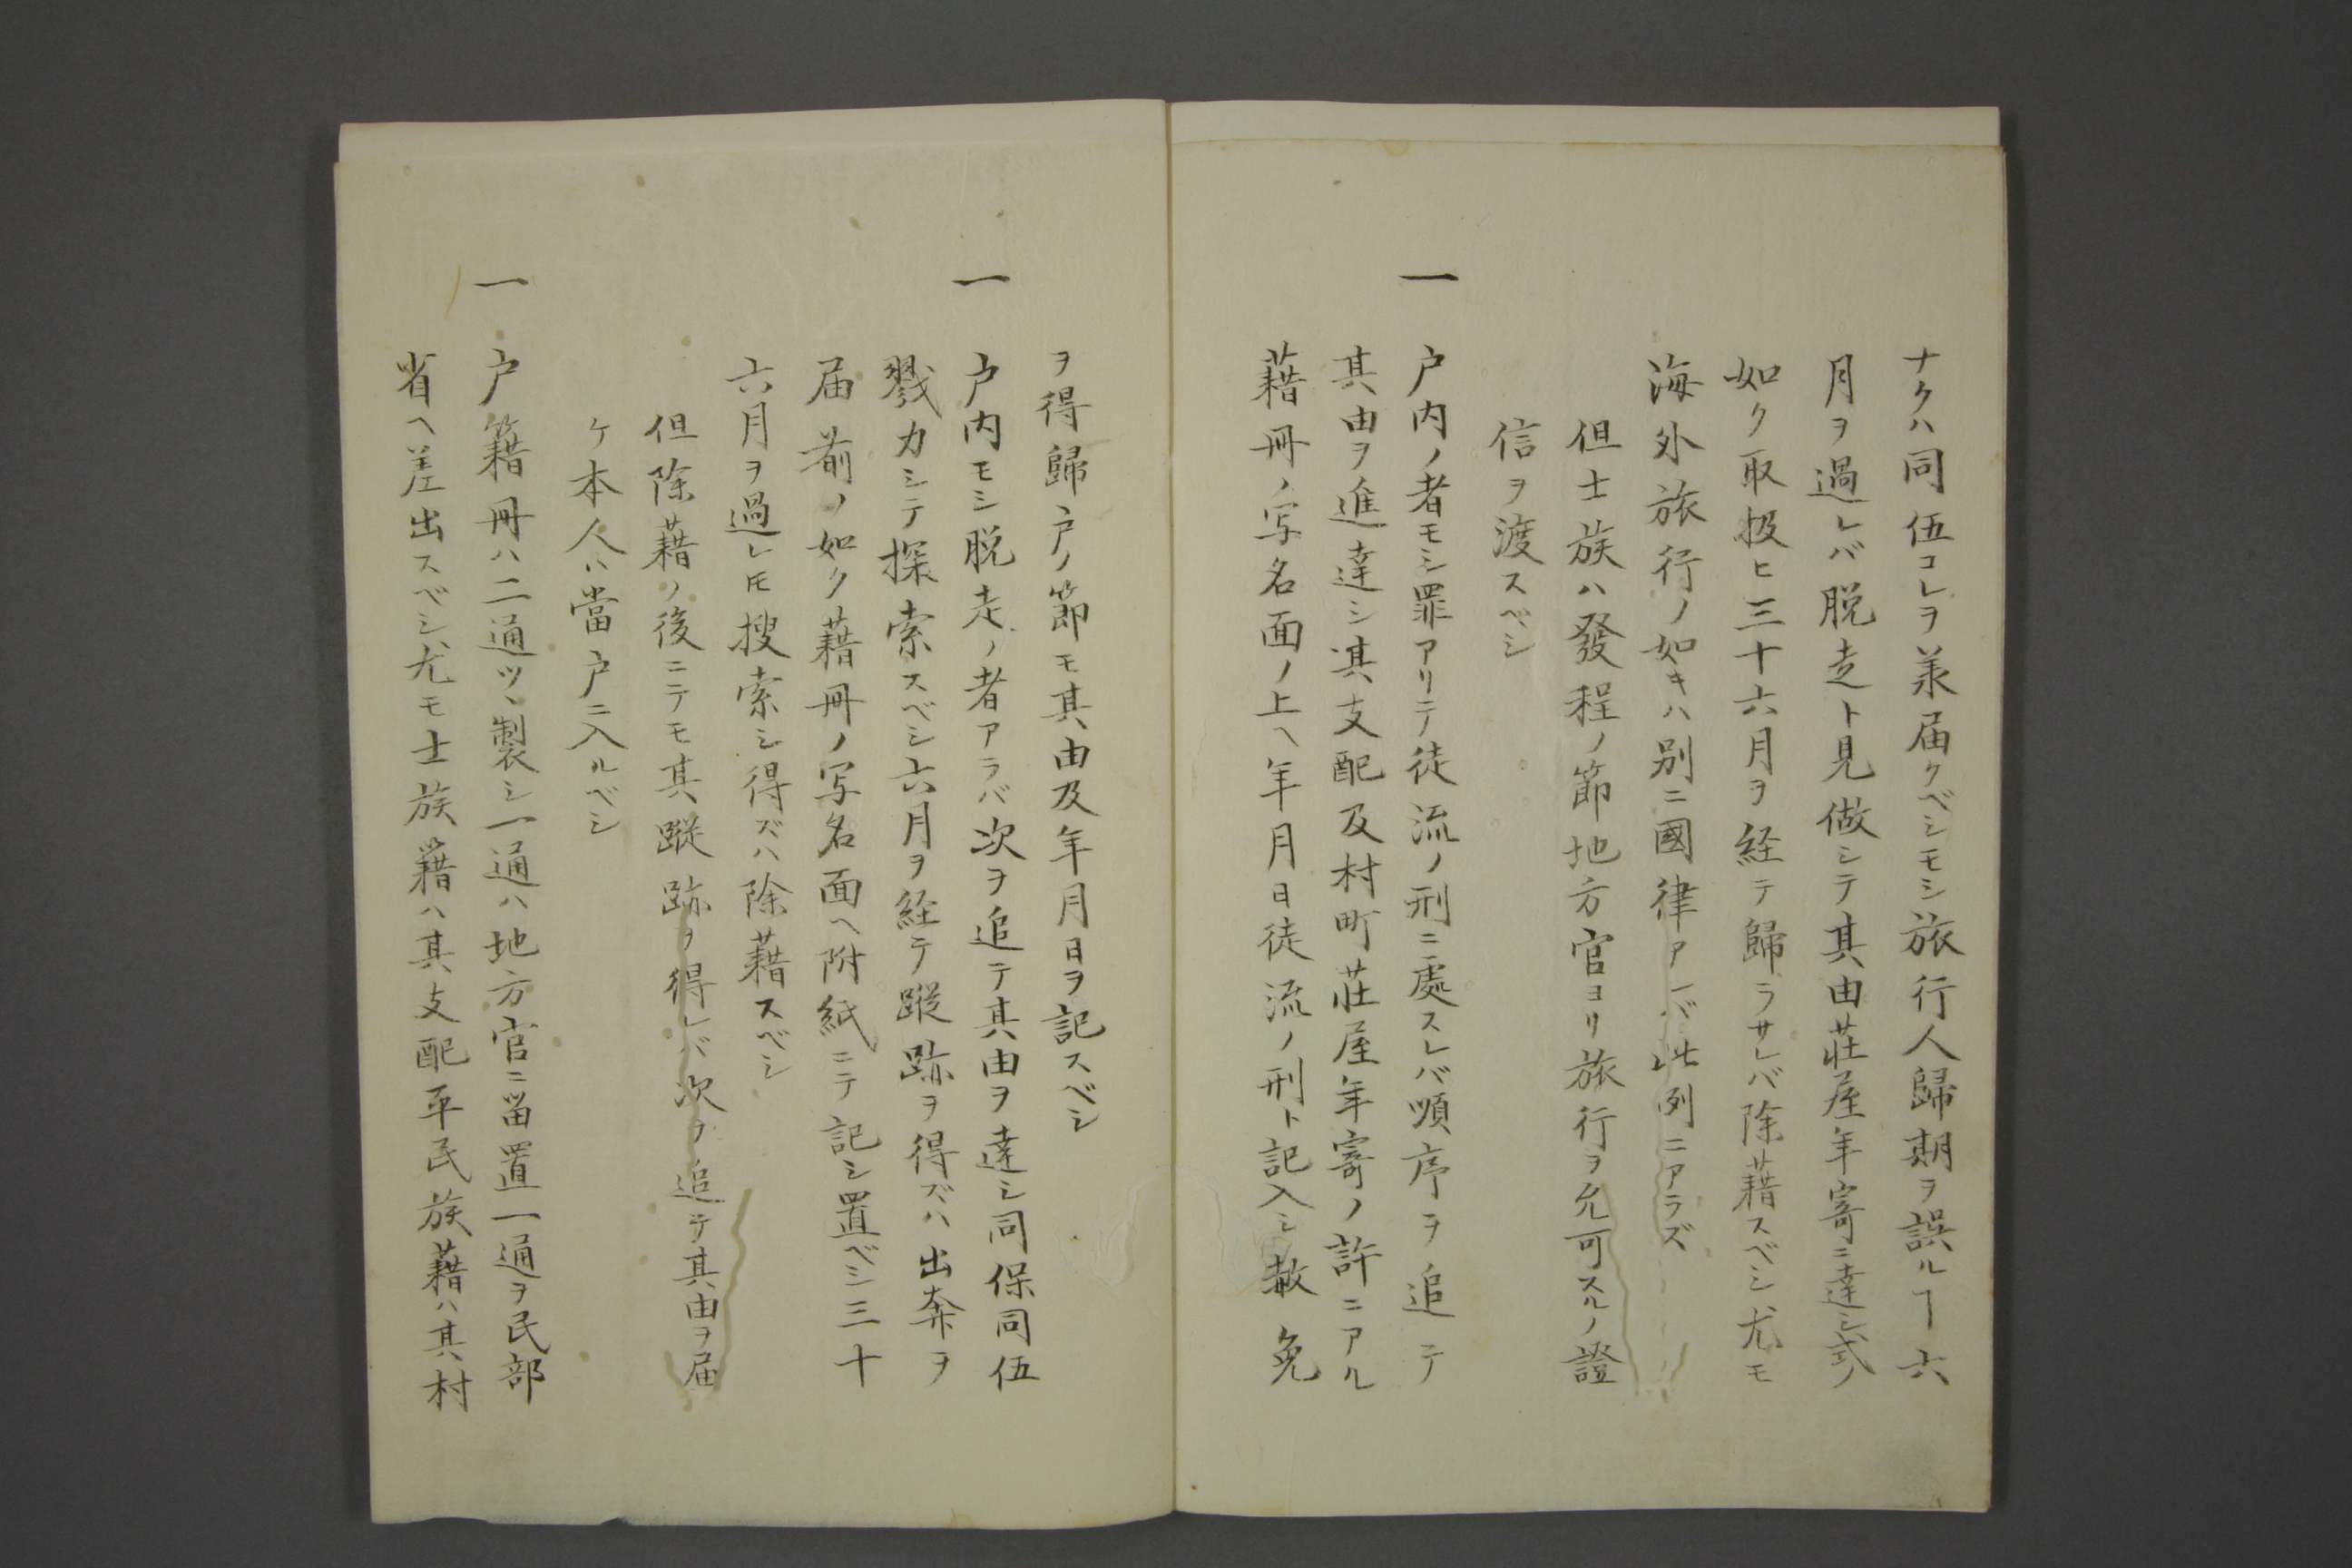 ナクハ同伍コレヲ承届クベシモシ旅行人歸期ヲ誤ルヿ六
月ヲ過レバ脱走ト見做シテ其由莊屋年寄ニ達シ式ノ
如ク取扱ヒ三十六月ヲ経テ歸ラサレバ除藉スベシ尤モ
海外旅行ノ如キハ別ニ國律アレバ此例ニアラズ
但士族ハ發程ノ節地方官ヨリ旅行ヲ允可スルノ證
信ヲ渡スベシ
一 戸内ノ者モシ罪アリテ徒流ノ刑ニ處スレバ順序ヲ追テ
其由ヲ進達シ其支配及村町莊屋年寄ノ許ニアル
藉冊ノ写名面ノ上ヘ年月日徒流ノ刑ト記入シ赦免
ヲ得歸戸ノ節モ其由及年月日ヲ記スベシ
一 戸内モシ脱走ノ者アラバ次ヲ追テ其由ヲ達シ同保同伍
戮力シテ探索スベシ六月ヲ経テ蹤跡ヲ得ズハ出奔ヲ
届前ノ如ク藉冊ノ写名面ヘ附紙ニテ記シ置ベシ三十
六月ヲ過レ𪜈搜索シ得ズハ除藉スベシ
但除藉ノ後ニテモ其蹤跡ヲ得レバ次ヲ追テ其由ヲ届
ケ本人ハ當戸ニ入ルベシ
一 戸籍冊ハ二通ツヽ製シ一通ハ地方官ニ畄置一通ヲ民部
省ヘ差出スベシ尤モ士族籍ハ其支配平民族藉ハ其村